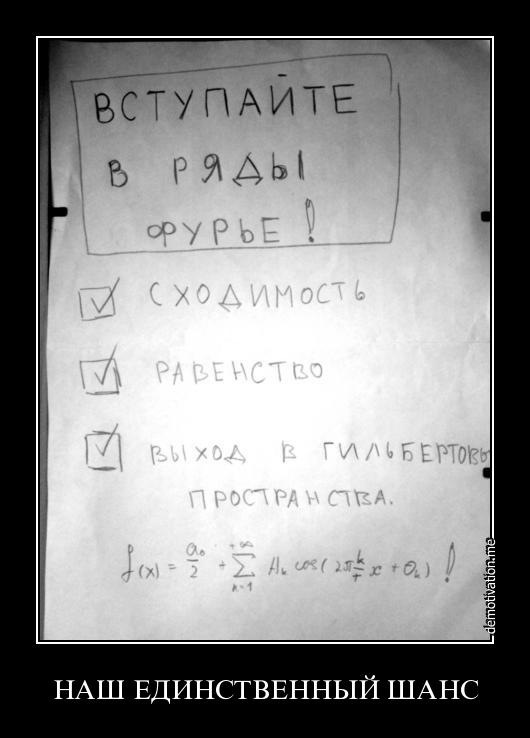 ВСТУПАЙТЕ
В РЯДЫ
ФУРЬЕ!
СХОДИМОСТЬ
РАВЕНСТВО
ВЫХОД В ГИЛЬБЕРТОВЫ
ПРОСТРАНСТВА.
f(x) = a₀/2 + +∞∑k=1 Aₖ cos(2π k/T x + Θₖ)!
demotivation.me
НАШ ЕДИНСТВЕННЫЙ ШАНС